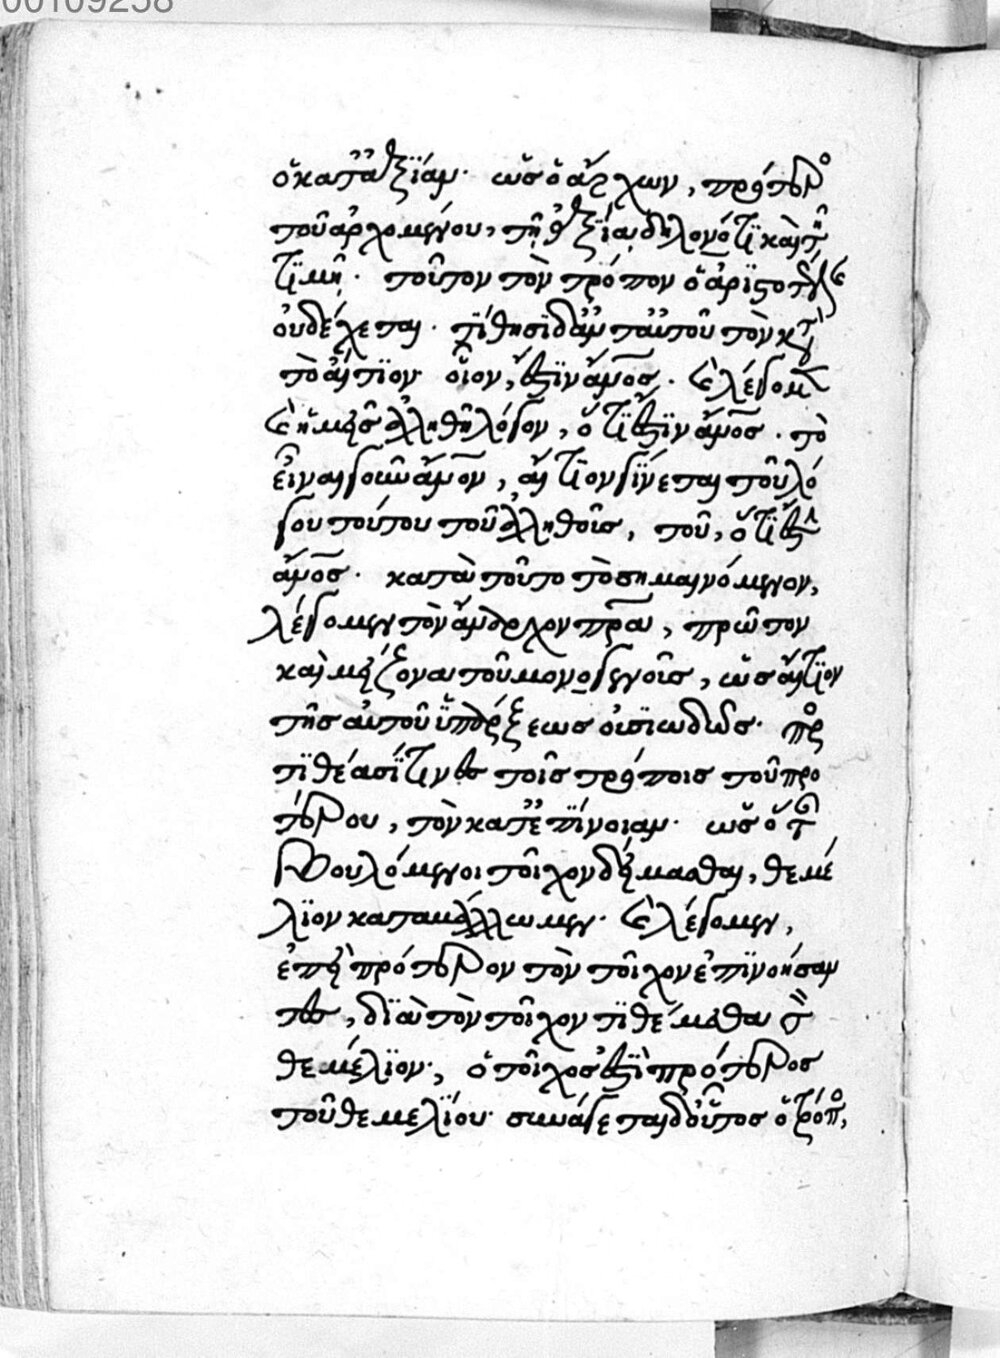 00109258
ὁ κατὰ ἀξίαν· ὡς ὁ ἄρχων, πρότερο
τοῦ ἀρχομένου, τῇ ἀξίᾳ δηλονότι καὶ τῇ
τιμῇ· τοῦτον τὸν τρόπον ὁ ἀριστοτέλης
οὐ δέχεται· τίθησι δ' ἀντ' αὐτοῦ τὸν κατὰ
τὸ αἴτιον· οἷον, ἔστιν ἄνος· καὶ λέγομεν
καὶ ἡμεῖς ἀληθῆ λόγον, ὅτι ἔστιν ἄνος· τὸ
εἶναι γοῦν ἄνον, αἴτιον γίνεται τοῦ λό
γου τούτου τοῦ ἀληθοῦς, τοῦ, ὅτι ἔστιν
ἄνος· κατὰ τοῦτο τὸ σημαινόμενον,
λέγομεν τὸν ἄναρχον πρα, πρῶτον
καὶ μείζονα τοῦ μονογενοῦς, ὡς αἴτιον
τῆς αὐτοῦ ὑπάρξεως οὐσιωδῶς· προσ
τιθέασί τινες τοῖς τρόποις τοῦ προ
τέρου, τὸν κατ' ἐπίνοιαν· ὡς ὅταν
βουλόμενοι τοῖχον δείμασθαι, θεμέ
λιον καταβάλλωμεν· καὶ λέγομεν,
ἐπεὶ πρότερον τὸν τοῖχον ἐπινοήσαν
τες, διὰ τὸν τοῖχον τιθέμεθα τὸν
θεμέλιον·, ὁ τοῖχος ἐστὶ πρότερος
τοῦ θεμελίου· συνάγεται δ' οὗτος ὁ τρόπος,